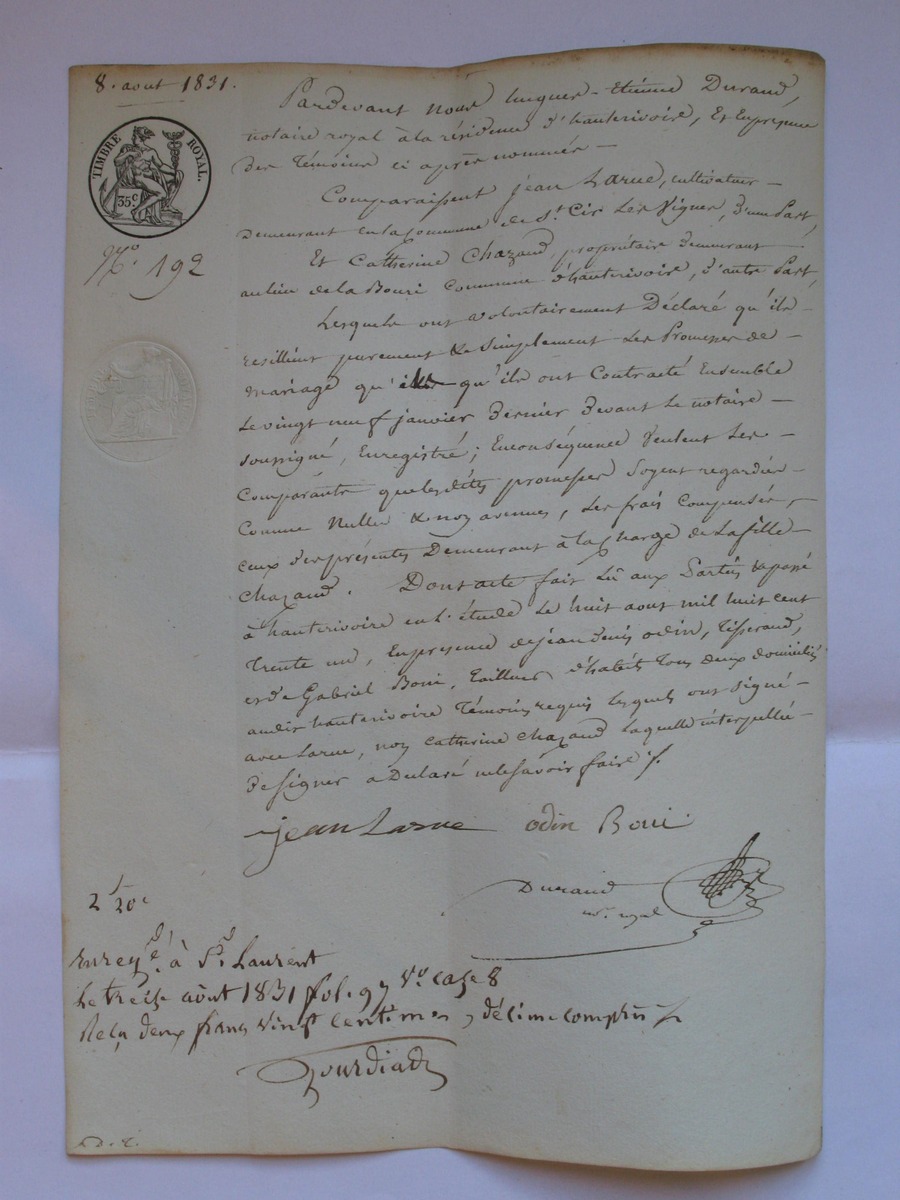 8. aout 1831.
TIMBRE ROYAL.
35c
N.o 192
Pardevant nous hugues-Etienne Durand,
notaire royal à la résidence d'hauterivoire, Et En présence
des Témoins ci après nommés —
Comparaissent jean Larue, cultivateur —
Demeurant en la Commune de St. Cir Les Vignes, d'une Part,
Et Catherine Chazaud, propriétaire demeurant
au lieu de la Bouri Commune d'hauterivoire, d'autre Part,
Lesquels ont volontairement Déclaré qu'ils
resillient purement & Simplement Les Promesses de —
mariage qu'ils qu'ils ont Contracté Ensemble
Le vingt neuf janvier Dernier Devant Le notaire —
soussigné, Enregistré; En conséquence Veulent Les —
Comparants que lesdites promesses soyent regardées —
Comme Nulles & non avenues, Les frais Compensés, —
ceux des présentes Demeurant à la Charge de La fille —
Chazaud. Dont acte fait Lû aux Parties & passé
à hauterivoire en l'étude Le huit aout mil huit cent
Trente un, En présence de jean denis odin, Tisserand,
et de Gabriel Boui, Tailleur d'habits Tous deux domiciliés
audit hauterivoire Témoins requis Lesquels ont Signé —
avec Larue, non Catherine Chazaud Laquelle interpellée —
De signer a Déclaré ne le savoir faire /.
jean Larue odin Boui.
Durand
nre. royal
2f 20c
Enregé. à St. Laurent
Le treize août 1831 fol. 97 Vo. case 8
Reçu deux francs vingt centimes, décime compris
D. E.